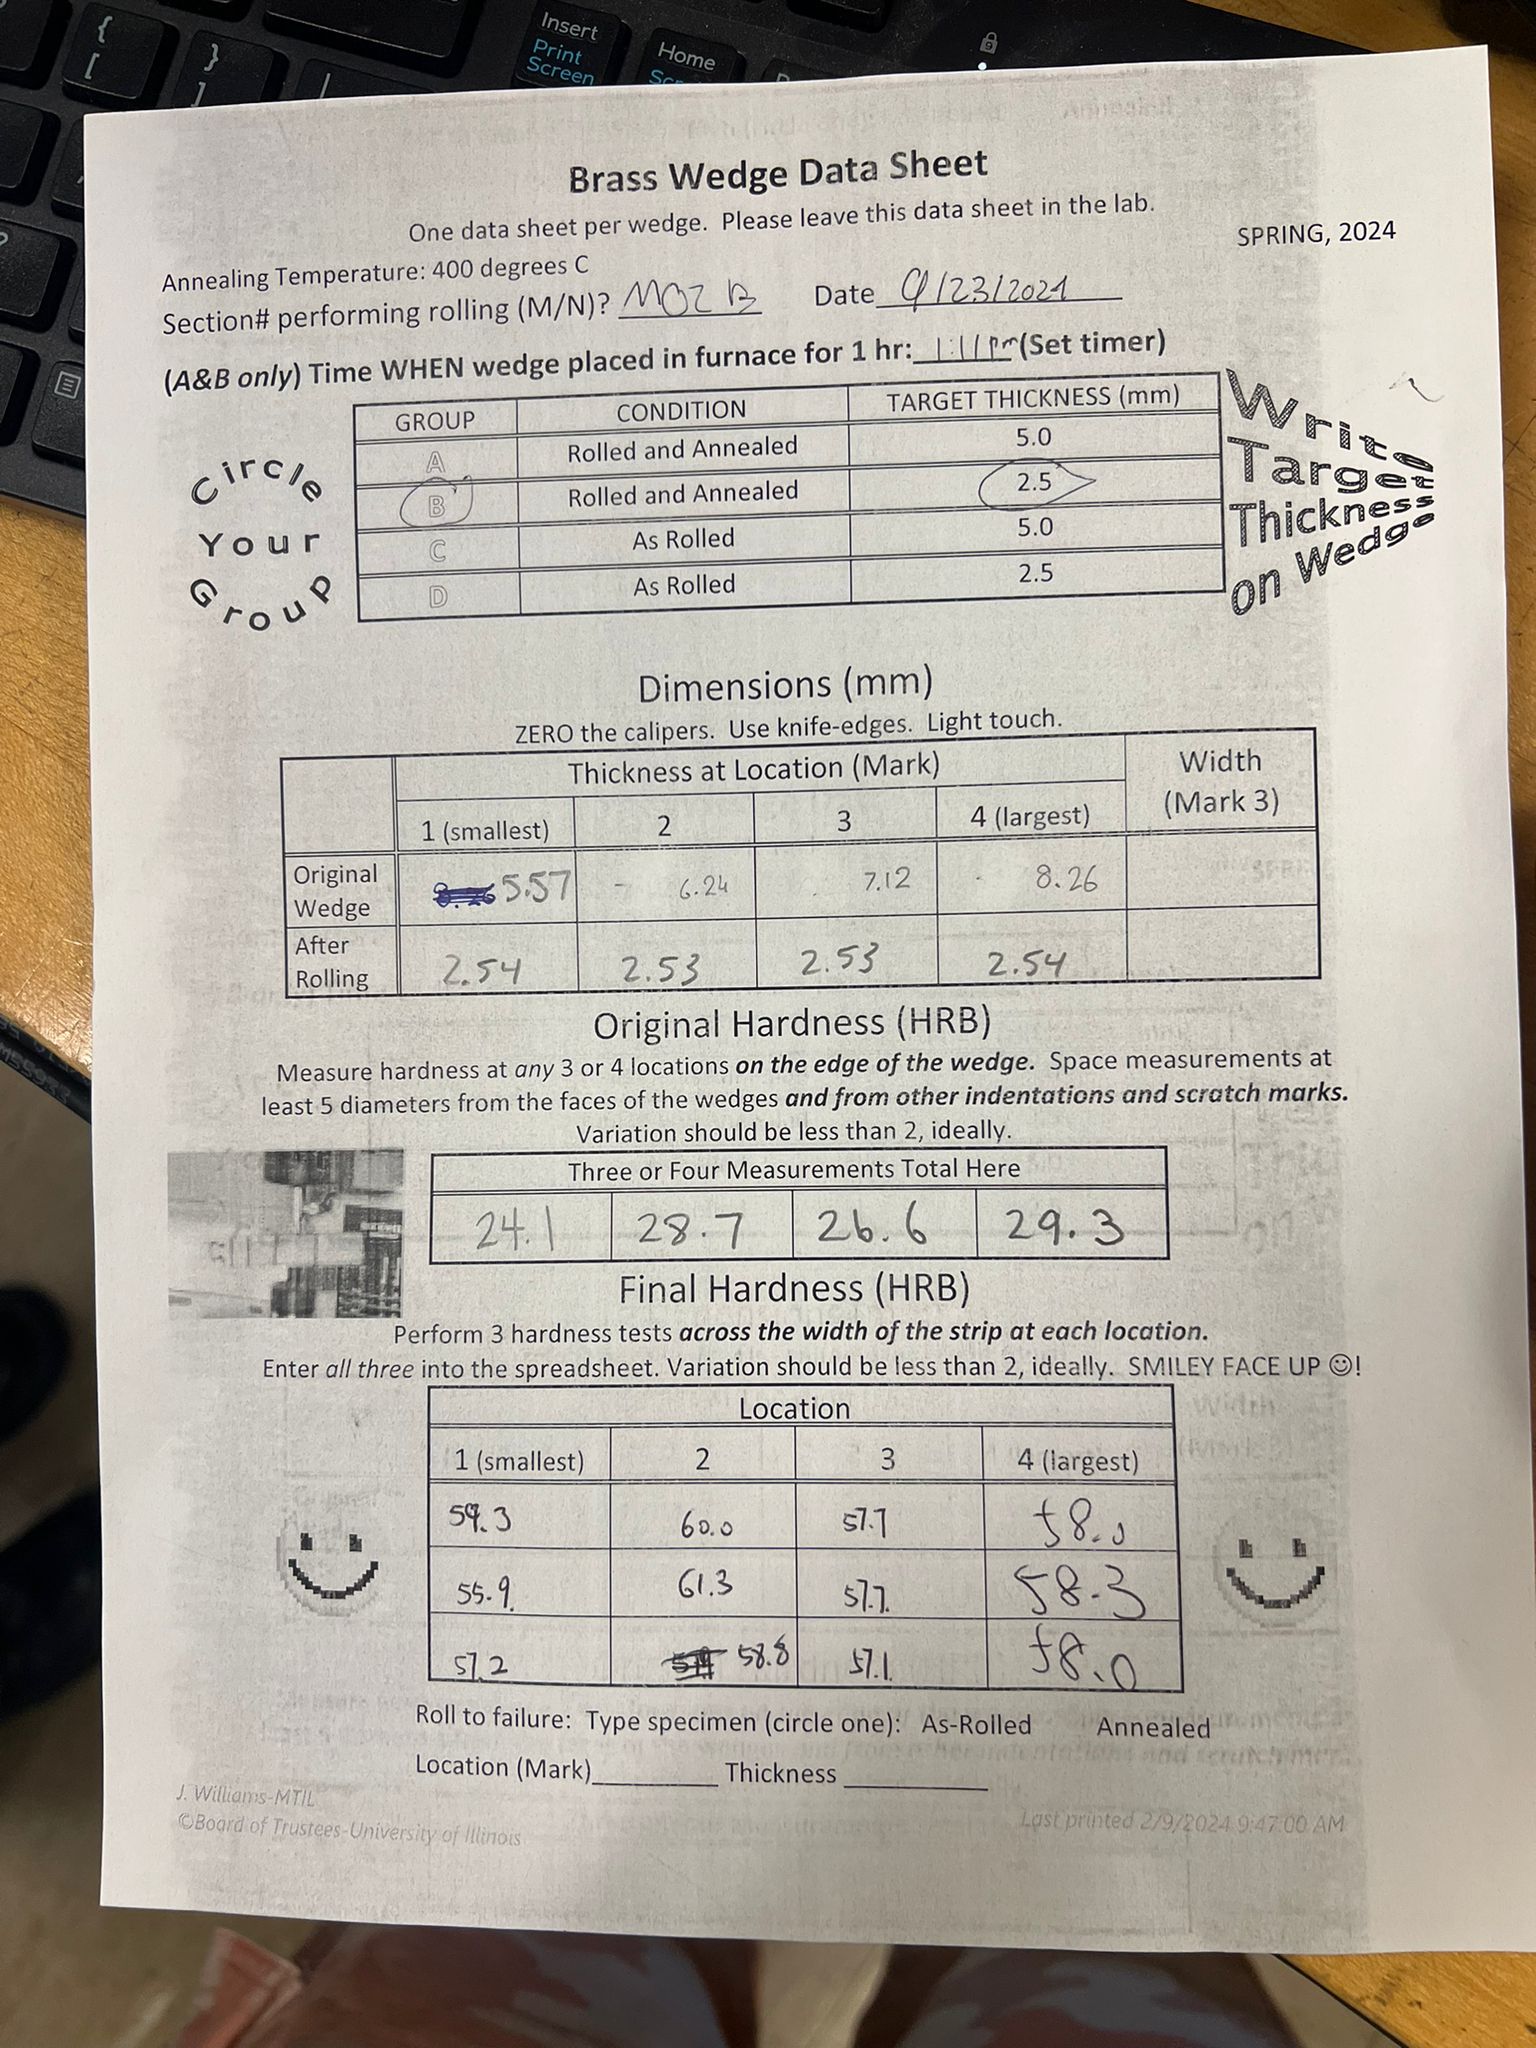 {
[
}
]
Insert
Print
Screen
Home
Brass Wedge Data Sheet
One data sheet per wedge. Please leave this data sheet in the lab.
SPRING, 2024
Annealing Temperature: 400 degrees C
Section# performing rolling (M/N)? MOZ B Date 9/23/2024
(A&B only) Time WHEN wedge placed in furnace for 1 hr: 1:11 pm (Set timer)
GROUP CONDITION TARGET THICKNESS (mm)
A Rolled and Annealed 5.0
B Rolled and Annealed 2.5
C As Rolled 5.0
D As Rolled 2.5
Circle
Your
Group
Write
Target
Thickness
on Wedge
Dimensions (mm)
ZERO the calipers. Use knife-edges. Light touch.
Thickness at Location (Mark) Width (Mark 3)
1 (smallest) 2 3 4 (largest)
Original Wedge 5.57 6.24 7.12 8.26
After Rolling 2.54 2.53 2.53 2.54
Original Hardness (HRB)
Measure hardness at any 3 or 4 locations on the edge of the wedge. Space measurements at
least 5 diameters from the faces of the wedges and from other indentations and scratch marks.
Variation should be less than 2, ideally.
Three or Four Measurements Total Here
24.1 28.7 26.6 29.3
Final Hardness (HRB)
Perform 3 hardness tests across the width of the strip at each location.
Enter all three into the spreadsheet. Variation should be less than 2, ideally. SMILEY FACE UP ☺!
Location
1 (smallest) 2 3 4 (largest)
59.3 60.0 57.7 58.0
55.9 61.3 57.7 58.3
57.2 58.8 57.1 58.0
Roll to failure: Type specimen (circle one): As-Rolled Annealed
Location (Mark) Thickness
J. Williams-MTIL
©Board of Trustees-University of Illinois
Last printed 2/9/2024 9:47:00 AM